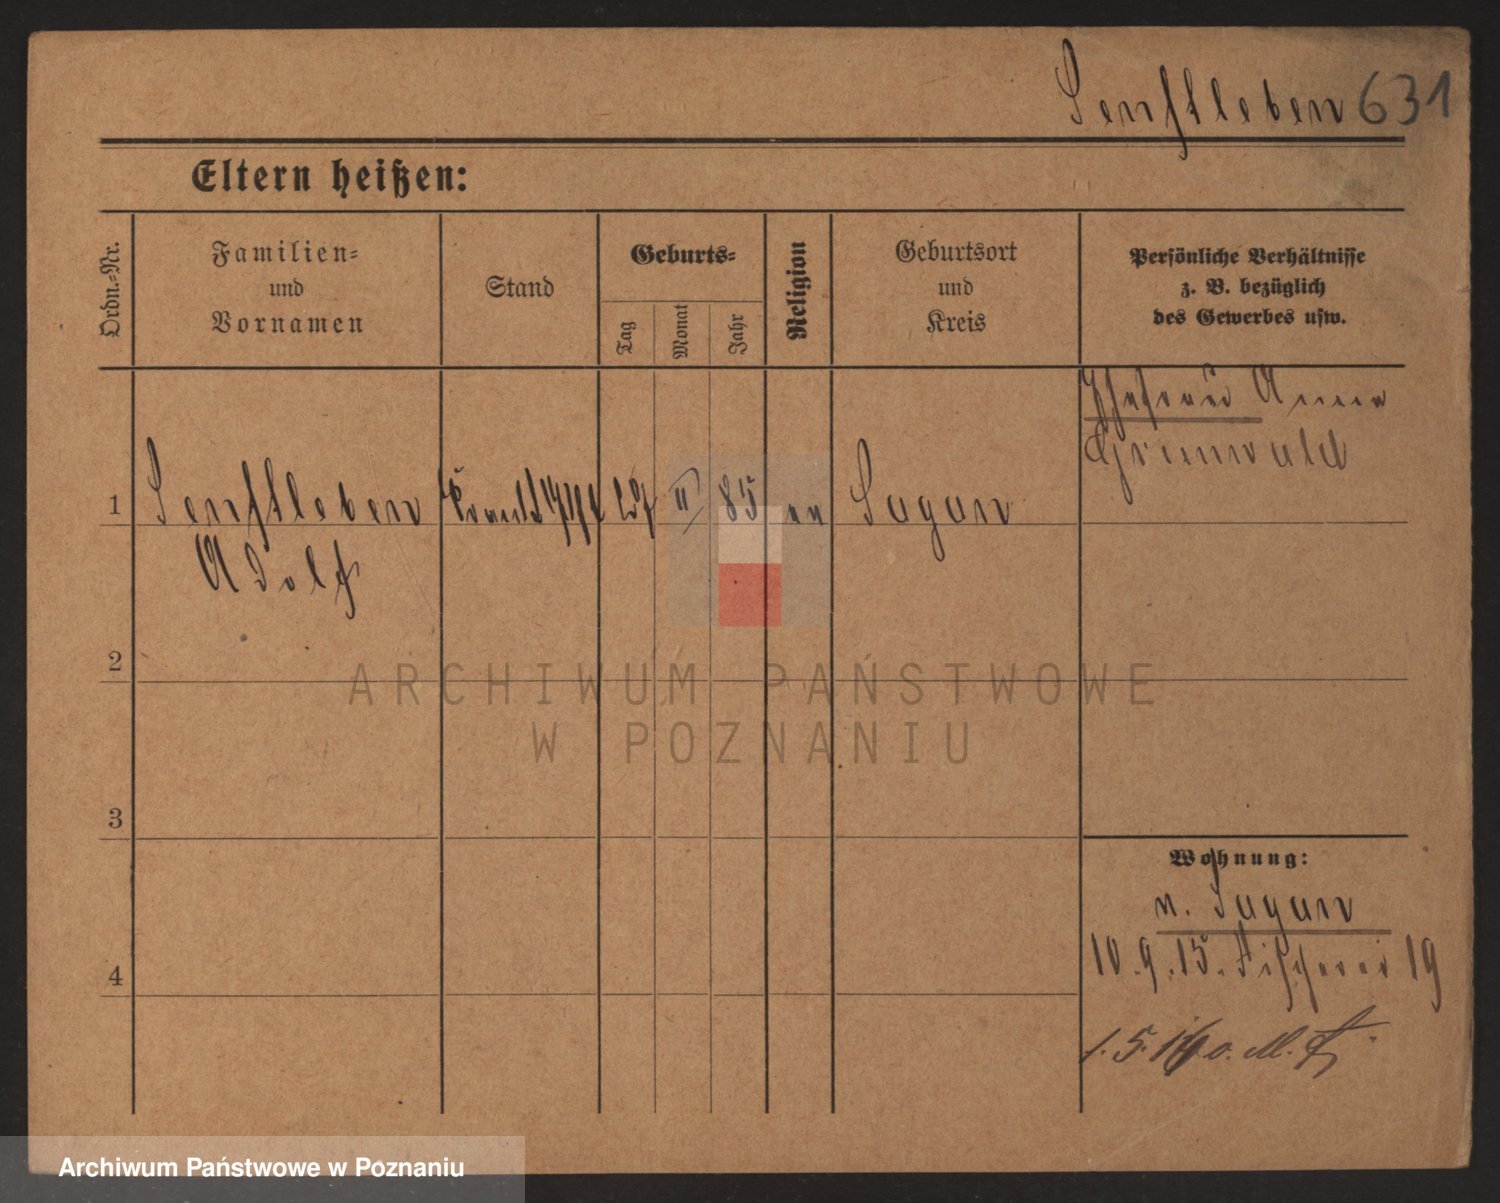 Senftleben 631
Eltern heißen:
Ordn.-Nr.
Familien-
und
Vornamen
Stand
Geburts-
Tag
Monat
Jahr
Religion
Geburtsort
und
Kreis
Persönliche Verhältnisse
z. B. bezüglich
des Gewerbes usw.
Ehefrau Anna
Grunwald
1
Senftleben
27
II
85
Sagan
Adolf
2
ARCHIWUM PAŃSTWOWE
W POZNANIU
3
Wohnung:
n. Sagan
4
10.9.15. Fischerei 19
1.5.16 o. M.
Archiwum Państwowe w Poznaniu